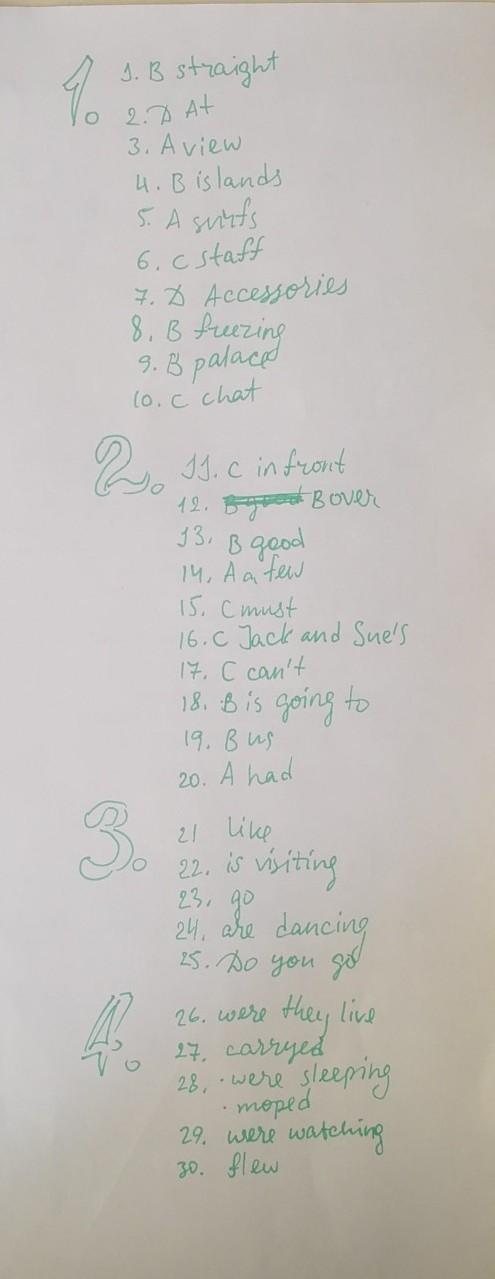 1.
1. B straight
2. D At
3. A view
4. B islands
5. A surfs
6. C staff
7. D Accessories
8. B freezing
9. B palace
10. C chat
2.
11. C in front
12. B good B over
13. B good
14. A a few
15. C must
16. C Jack and Sue's
17. C can't
18. B is going to
19. B us
20. A had
3.
21 like
22. is visiting
23. go
24. are dancing
25. Do you go
4.
26. were they live
27. carryed
28. · were sleeping
· moped
29. were watching
30. flew